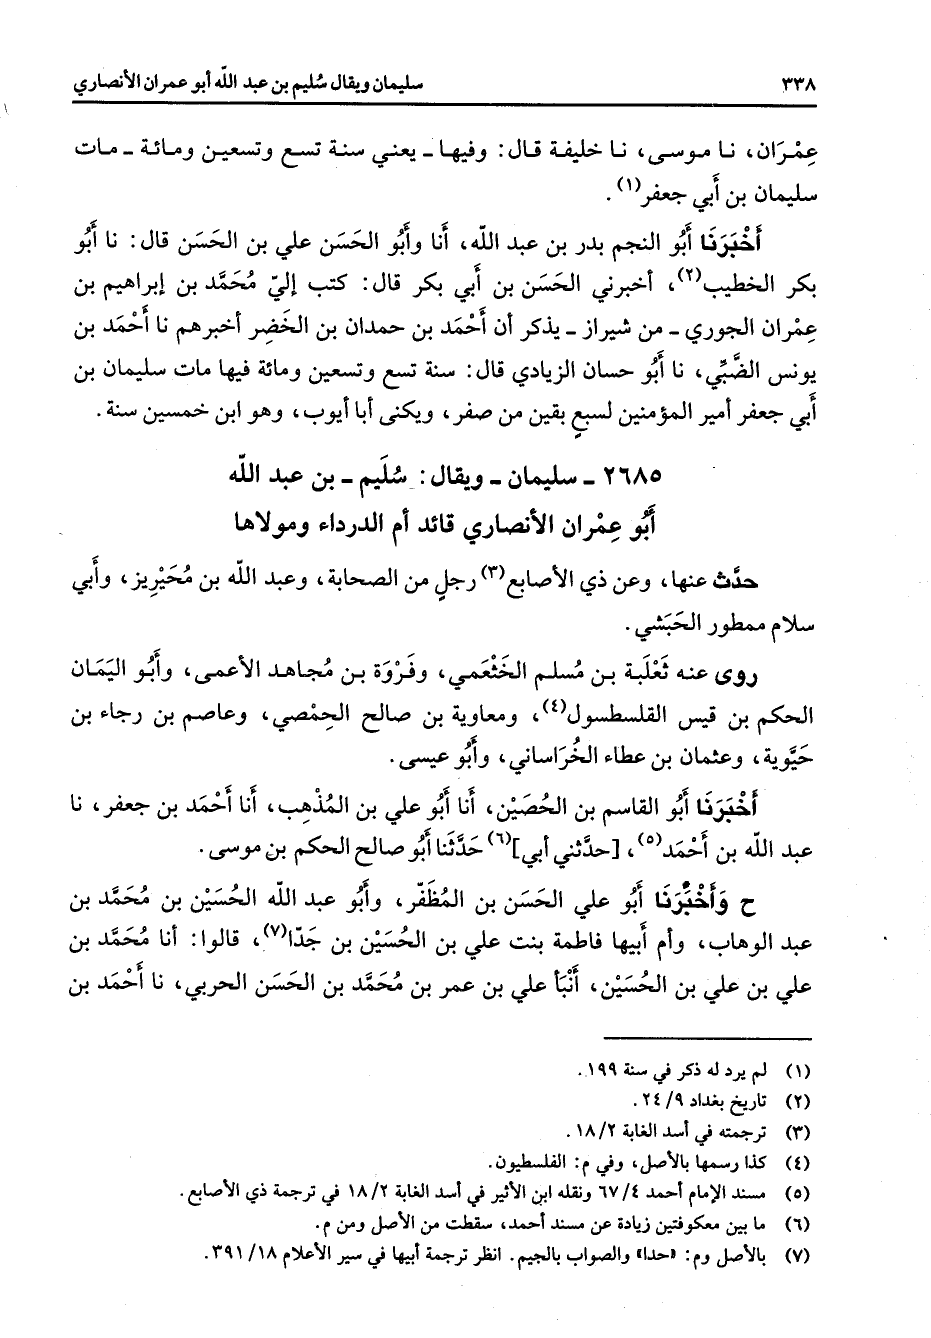 ٣٣٨ سليمان ويقال سُليم بن عبد اللّه أبو عمران الأنصاري
عِمْرَان، نـا موسـى، نـا خليفـة قـال: وفيهـا ـ يعني سنة تسع وتسعيـن ومـائـة ـ مـات
سليمان بن أَبي جعفر(١).
أَخْبَرَنَا أَبُو النجم بدر بن عبد اللّه، أَنا وأَبو الحَسَن علي بن الحَسَن قال: نا أَبُو
بكر الخطيب(٢)، أخبرني الحَسَن بن أَبي بكر قال: كتب إليّ مُحَمَّد بن إبراهيم بن
عِمْران الجوري ـ من شيراز ـ يذكر أن أَحْمَد بن حمدان بن الخَضِر أخبرهم نا أَحْمَد بن
يونس الضَّبِّي، نا أَبُو حسان الزيادي قال: سنة تسع وتسعين ومائة فيها مات سليمان بن
أَبي جعفر أمير المؤمنين لسبعٍ بقين من صفر، ويكنى أبا أيوب، وهو ابن خمسين سنة.
٢٦٨٥ ـ سليمان ـ ويقال: سُلَيم ـ بن عبد اللّه
أَبُو عِمْران الأنصاري قائد أم الدرداء ومولاها
حدَّث عنها، وعن ذي الأصابع(٣) رجلٍ من الصحابة، وعبد اللّه بن مُحَيْريز، وأَبي
سلام ممطور الحَبَشي.
روى عنه ثَعْلَبة بن مُسلم الخَثْعَمي، وفَرْوَة بن مُجاهد الأعمى، وأَبُو اليَمَان
الحكم بن قيس القلسطسول(٤)، ومعاوية بن صالح الحِمْصي، وعاصم بن رجاء بن
حَيَّوية، وعثمان بن عطاء الخُرَاساني، وأَبُو عيسى.
أَخْبَرَنَا أَبُو القاسم بن الحُصَيْن، أَنا أَبُو علي بن المُذْهِب، أَنا أَحْمَد بن جعفر، نا
عبد اللّه بن أَحْمَد(٥)، [حدَّثني أبي](٦) حَدَّثَنا أَبُو صالح الحكم بن موسى.
ح وَأَخْبَرَنَا أَبُو علي الحَسَن بن المُظَفّر، وأَبُو عبد اللّه الحُسَيْن بن مُحَمَّد بن
عبد الوهاب، وأم أَبيها فاطمة بنت علي بن الحُسَيْن بن جَدّا(٧)، قالوا: أنا مُحَمَّد بن
علي بن علي بن الحُسَيْن، أَنْبَأ علي بن عمر بن مُحَمَّد بن الحَسَن الحربي، نا أَحْمَد بن
(١) لم يرد له ذكر في سنة ١٩٩.
(٢) تاريخ بغداد ٢٤/٩.
(٣) ترجمته في أسد الغابة ١٨/٢.
(٤) كذا رسمها بالأصل، وفي م: الفلسطيون.
(٥) مسند الإمام أحمد ٦٧/٤ ونقله ابن الأثير في أسد الغابة ١٨/٢ في ترجمة ذي الأصابع.
(٦) ما بين معكوفتين زيادة عن مسند أحمد، سقطت من الأصل ومن م.
(٧) بالأصل وم: «حدا» والصواب بالجيم. انظر ترجمة أبيها في سير الأعلام ٣٩١/١٨.